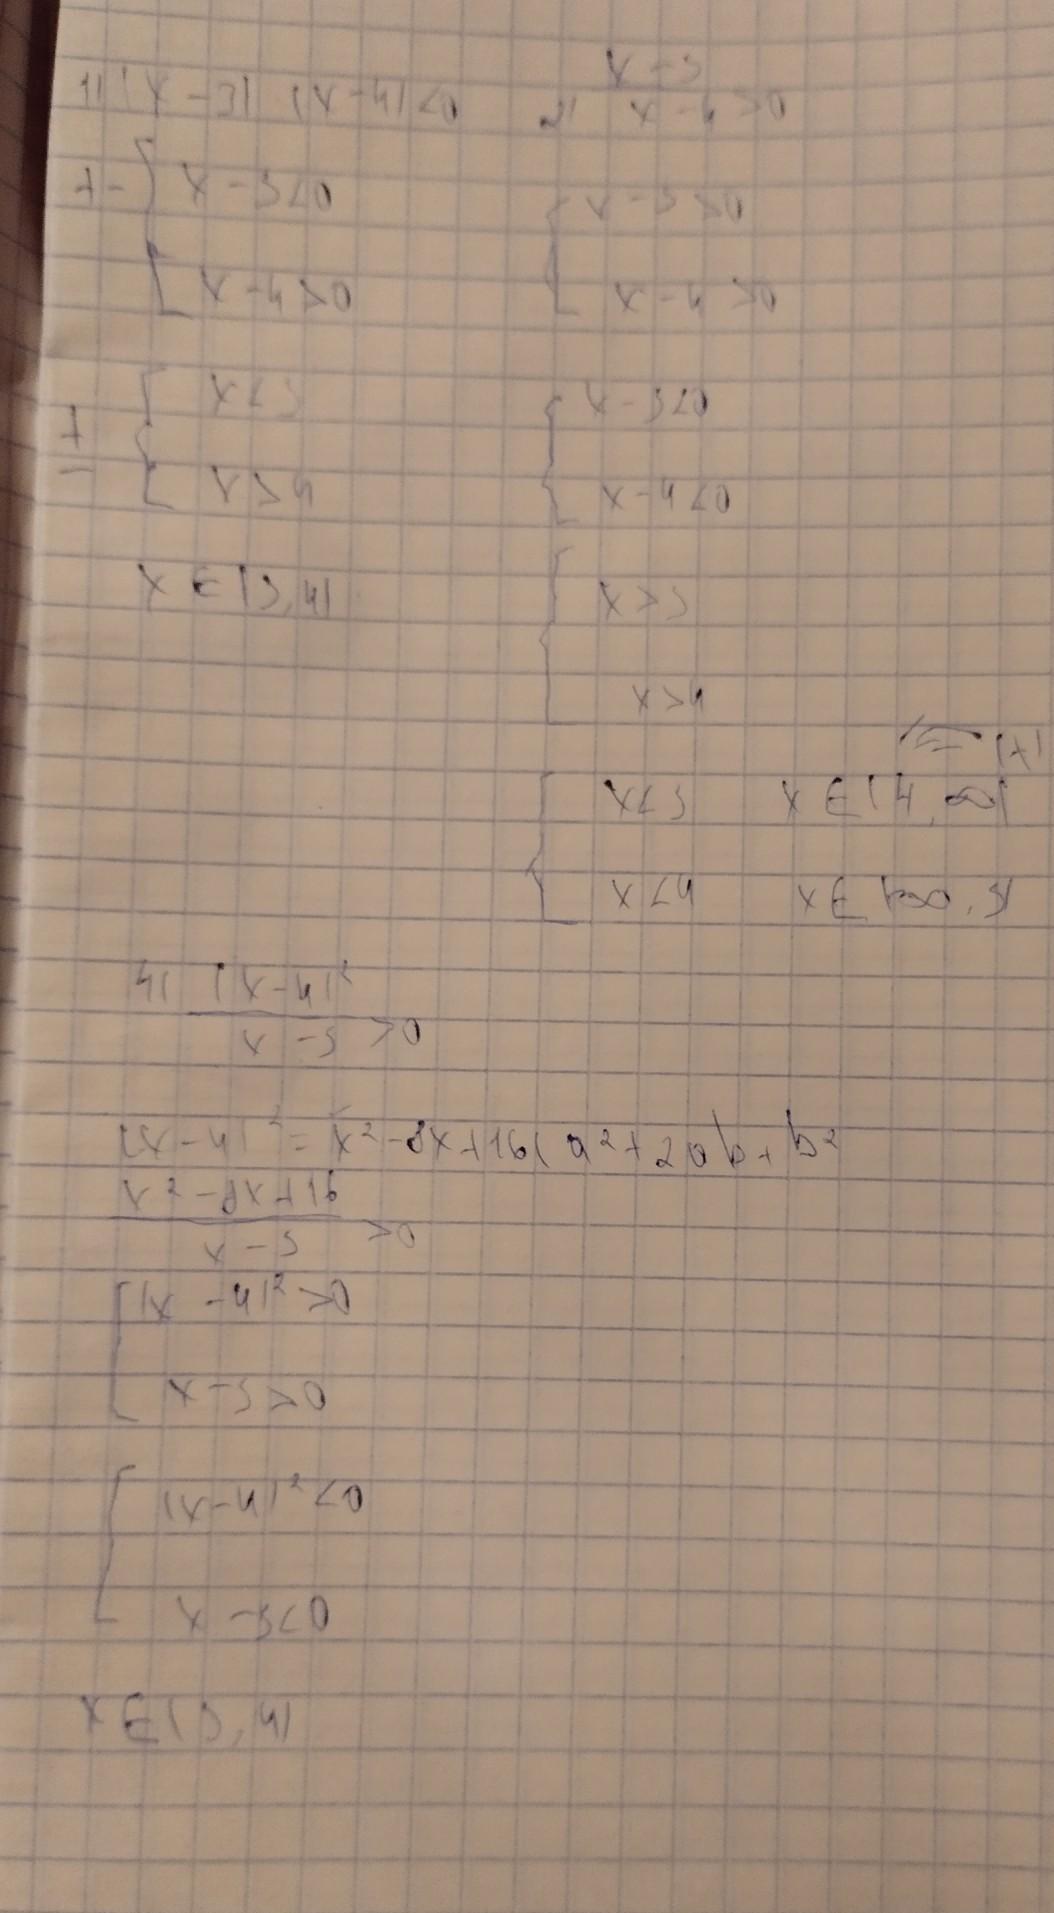 1) (x-3) (x-4)<0
2) x-3
x-4 >0
+- x-3<0
x-4>0
x<3
x>4
x ∈ (3, 4)
x-3>0
x-4>0
x-3<0
x-4<0
x>3
x>4
x<3 x ∈ (4, ∞)
x<4
4) (x-4)²
x-3 >0
(x-4)² = x²-8x+16( a²+2ab+b²
x²-8x+16
x-3 >0
(x-4)²>0
x-3>0
(x-4)²<0
x-3<0
x ∈ (3, 4)